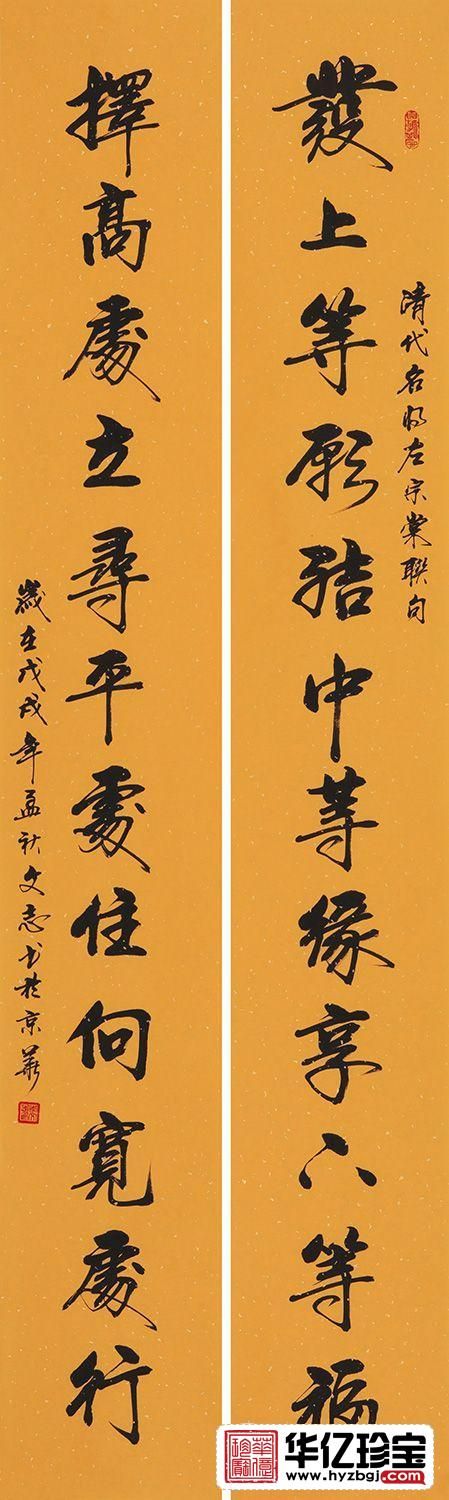 發上等願結中等緣享下等福
清代名將左宗棠聯句
擇高處立尋平處住向寬處行
歲在戊戌年孟秋文志书於京華
华亿珍宝
www.hyzbgj.com